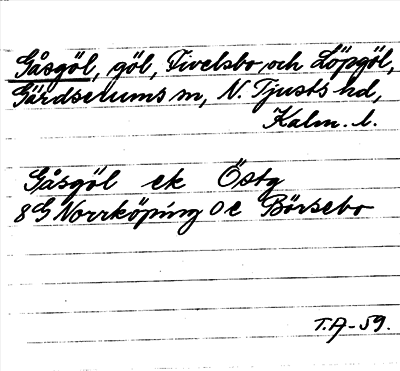 Gåsgöl, göl, Tivelsbo och Löpgöl,
Gärdserums sn, N. Tjusts hd,
Kalm. l.
Gåsgöl ek Östg
8G Norrköping 0e Börsebo
T.A-59.